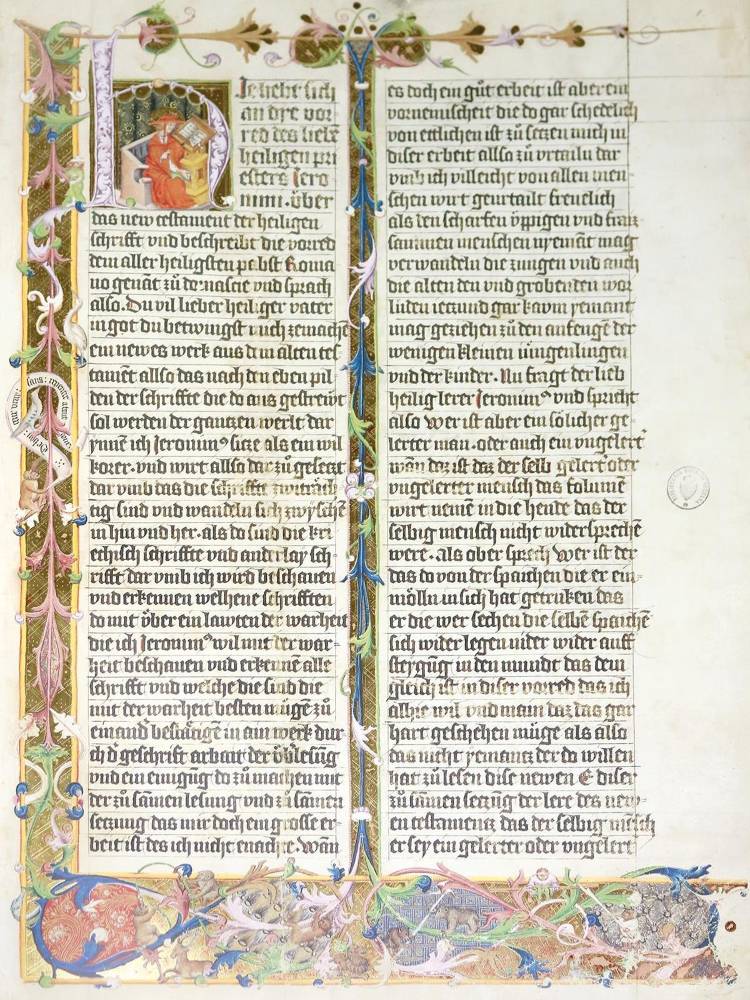 Hie hebt sich
an dye vor
red des liebē
heiligen pri
esters Jero
nimi. über
das new testament der heiligen
schrifft vnd beschreibt die vorred
dem aller heiligsten pabst Roma
no genāt zů damascie vnd sprach
also. Du vil lieber heiliger vater
in got du betwingst mich zemachē
ein newes werk aus dem alten tes
tamēt allso das nach den eben pil
den der schriffte die do aus gestrewt
sol werden der gantzen werlt dar
ynnē ich Jeronimꝰ sitze als ein wil
korer. vnd wirt allso dar zů gesetzt
dar vmb das die schriffte zwitrách
tig sind vnd wandeln sich zwyschē
in hin vnd her. als do sind die kri
echisch schriffte vnd anderlay sch-
rifft dar vmb ich wird beschauen
vnd erkennen welhene schrifften
do mit über ein lawten der warheit
die ich Jeronimꝰ wil mit der war-
heit beschauen vnd erkennē alle
schrifft vnd welche die sind die
mit der warheit besten mügē zů
einand bestátigē in aim werk dur
ch d geschrift arbait der überlesūg
vnd ein einigūg do zů machen mit
der zů sāmen lesung vnd zů sāmen
setzung das mir doch ein grosse er-
beit ist des ich nicht enachte. Wān
es doch ein gůt erbeit ist aber ein
vornemischeit die do gar schedelich
von ettlichen ist zů setzen mich in
diser erbeit allso zů vrtailn dar
vmb ich villeicht von allen men-
schen wirt geurtailt freuelich
als den scharfen üppigen vnd
samnen menschen nyemāt mag
verwandeln die zungen vnd auch
die alten den vnd grobenden wor
luden ieczund gar kawm yemant
mag geziehen zů den anfenge der
wenigen kleinen iungenlingen
vnd der kinder. Nu fragt der lieb
heilig lerer Jeronimꝰ vnd spricht
also Wer ist aber ein sölicher ge-
lerter man. oder auch ein vngelert
wān daz ist daz der selb gelert oder
vngelerter mensch das folumē
wirt nemē in die hende das der
selbig mensch nicht widersprechē
were. Als ober sprech Wer ist der
das do von der spaichen die er ein-
möln in sich hat getruken das
er die wer sechen die selbē spaichē
sich wider legen nider wider auff
steygūg in den mundt das dem
gleich ist in diser vorred das ich
alhie wil vnd main daz das gar
hart geschehen müge als also
das nicht yemantz der do willen
hat zů lesen dise newen E diser
zů samen setzūg der lere des new-
en testamentz das der selbig mēsch
er sey ein gelerter oder vngelert